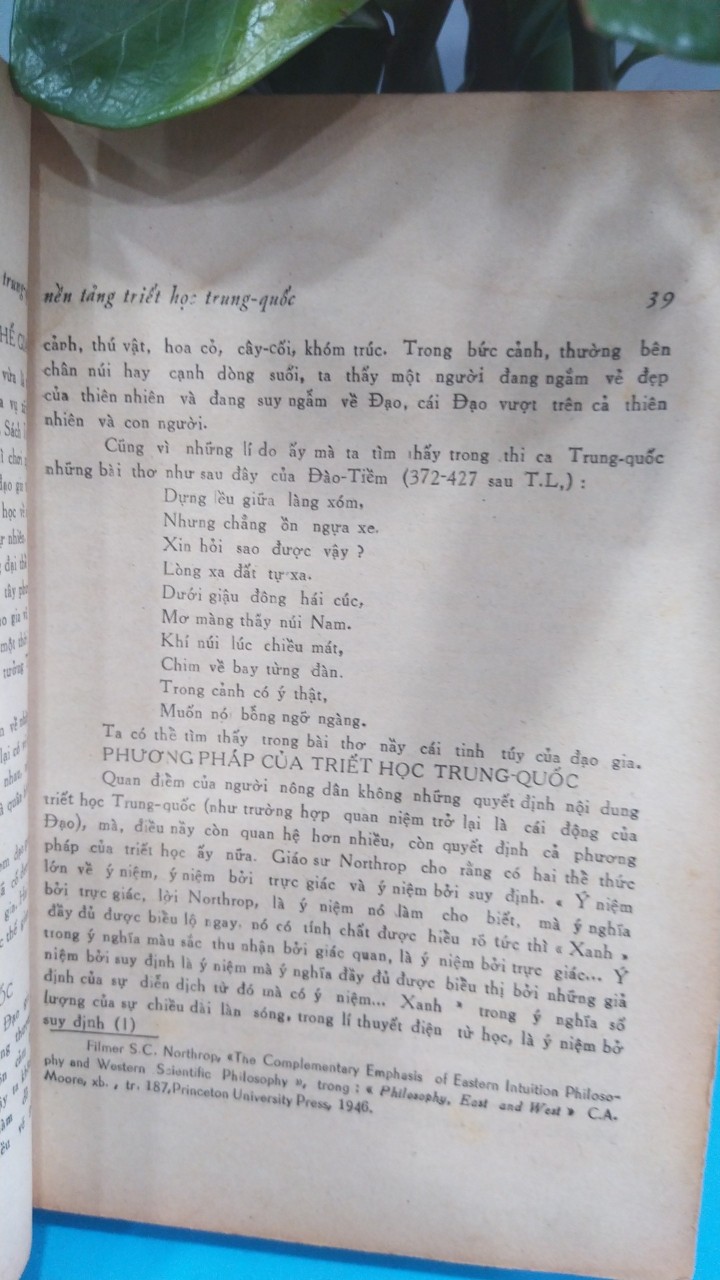 nền tảng triết học trung-quốc 39
cảnh, thú vật, hoa cỏ, cây-cối, khóm trúc. Trong bức cảnh, thường bên
chân núi hay cạnh dòng suối, ta thấy một người đang ngắm vẻ đẹp
của thiên nhiên và đang suy ngẫm về Đạo, cái Đạo vượt trên cả thiên
nhiên và con người.
Cũng vì những lí do ấy mà ta tìm thấy trong thi ca Trung-quốc
những bài thơ như sau đây của Đào-Tiềm (372-427 sau T.L,) :
Dựng lều giữa làng xóm,
Nhưng chẳng ồn ngựa xe.
Xin hỏi sao được vậy ?
Lòng xa đất tự xa.
Dưới giậu đông hái cúc,
Mơ màng thấy núi Nam.
Khí núi lúc chiều mát,
Chim về bay từng đàn.
Trong cảnh có ý thật,
Muốn nó bỗng ngỡ ngàng.
Ta có thể tìm thấy trong bài thơ nầy cái tinh túy của đạo gia.
PHƯƠNG PHÁP CỦA TRIẾT HỌC TRUNG-QUỐC
Quan điểm của người nông dân không những quyết định nội dung
triết học Trung-quốc (như trường hợp quan niệm trở lại là cái động của
Đạo), mà, điều nầy còn quan hệ hơn nhiều, còn quyết định cả phương
pháp của triết học ấy nữa. Giáo sư Northrop cho rằng có hai thể thức
lớn về ý niệm, ý niệm bởi trực giác và ý niệm bởi suy định. « Ý niệm
bởi trực giác, lời Northrop, là ý niệm nó làm cho biết, mà ý nghĩa
đầy đủ được biểu lộ ngay. nó có tính chất được hiểu rõ tức thì « Xanh »
trong ý nghĩa màu sắc thu nhận bởi giác quan, là ý niệm bởi trực giác... Ý
niệm bởi suy định là ý niệm mà ý nghĩa đầy đủ được biểu thị bởi những giả
định của sự diễn dịch từ đó mà có ý niệm... Xanh » trong ý nghĩa số
lượng của sự chiều dài làn sóng, trong lí thuyết điện từ học, là ý niệm bở
suy định (1)
Filmer S.C. Northrop, «The Complementary Emphasis of Eastern Intuition Philoso-
phy and Western Scientific Philosophy », trong : « Philosophy, East and West » C.A.
Moore, xb. , tr. 187,Princeton University Press, 1946.